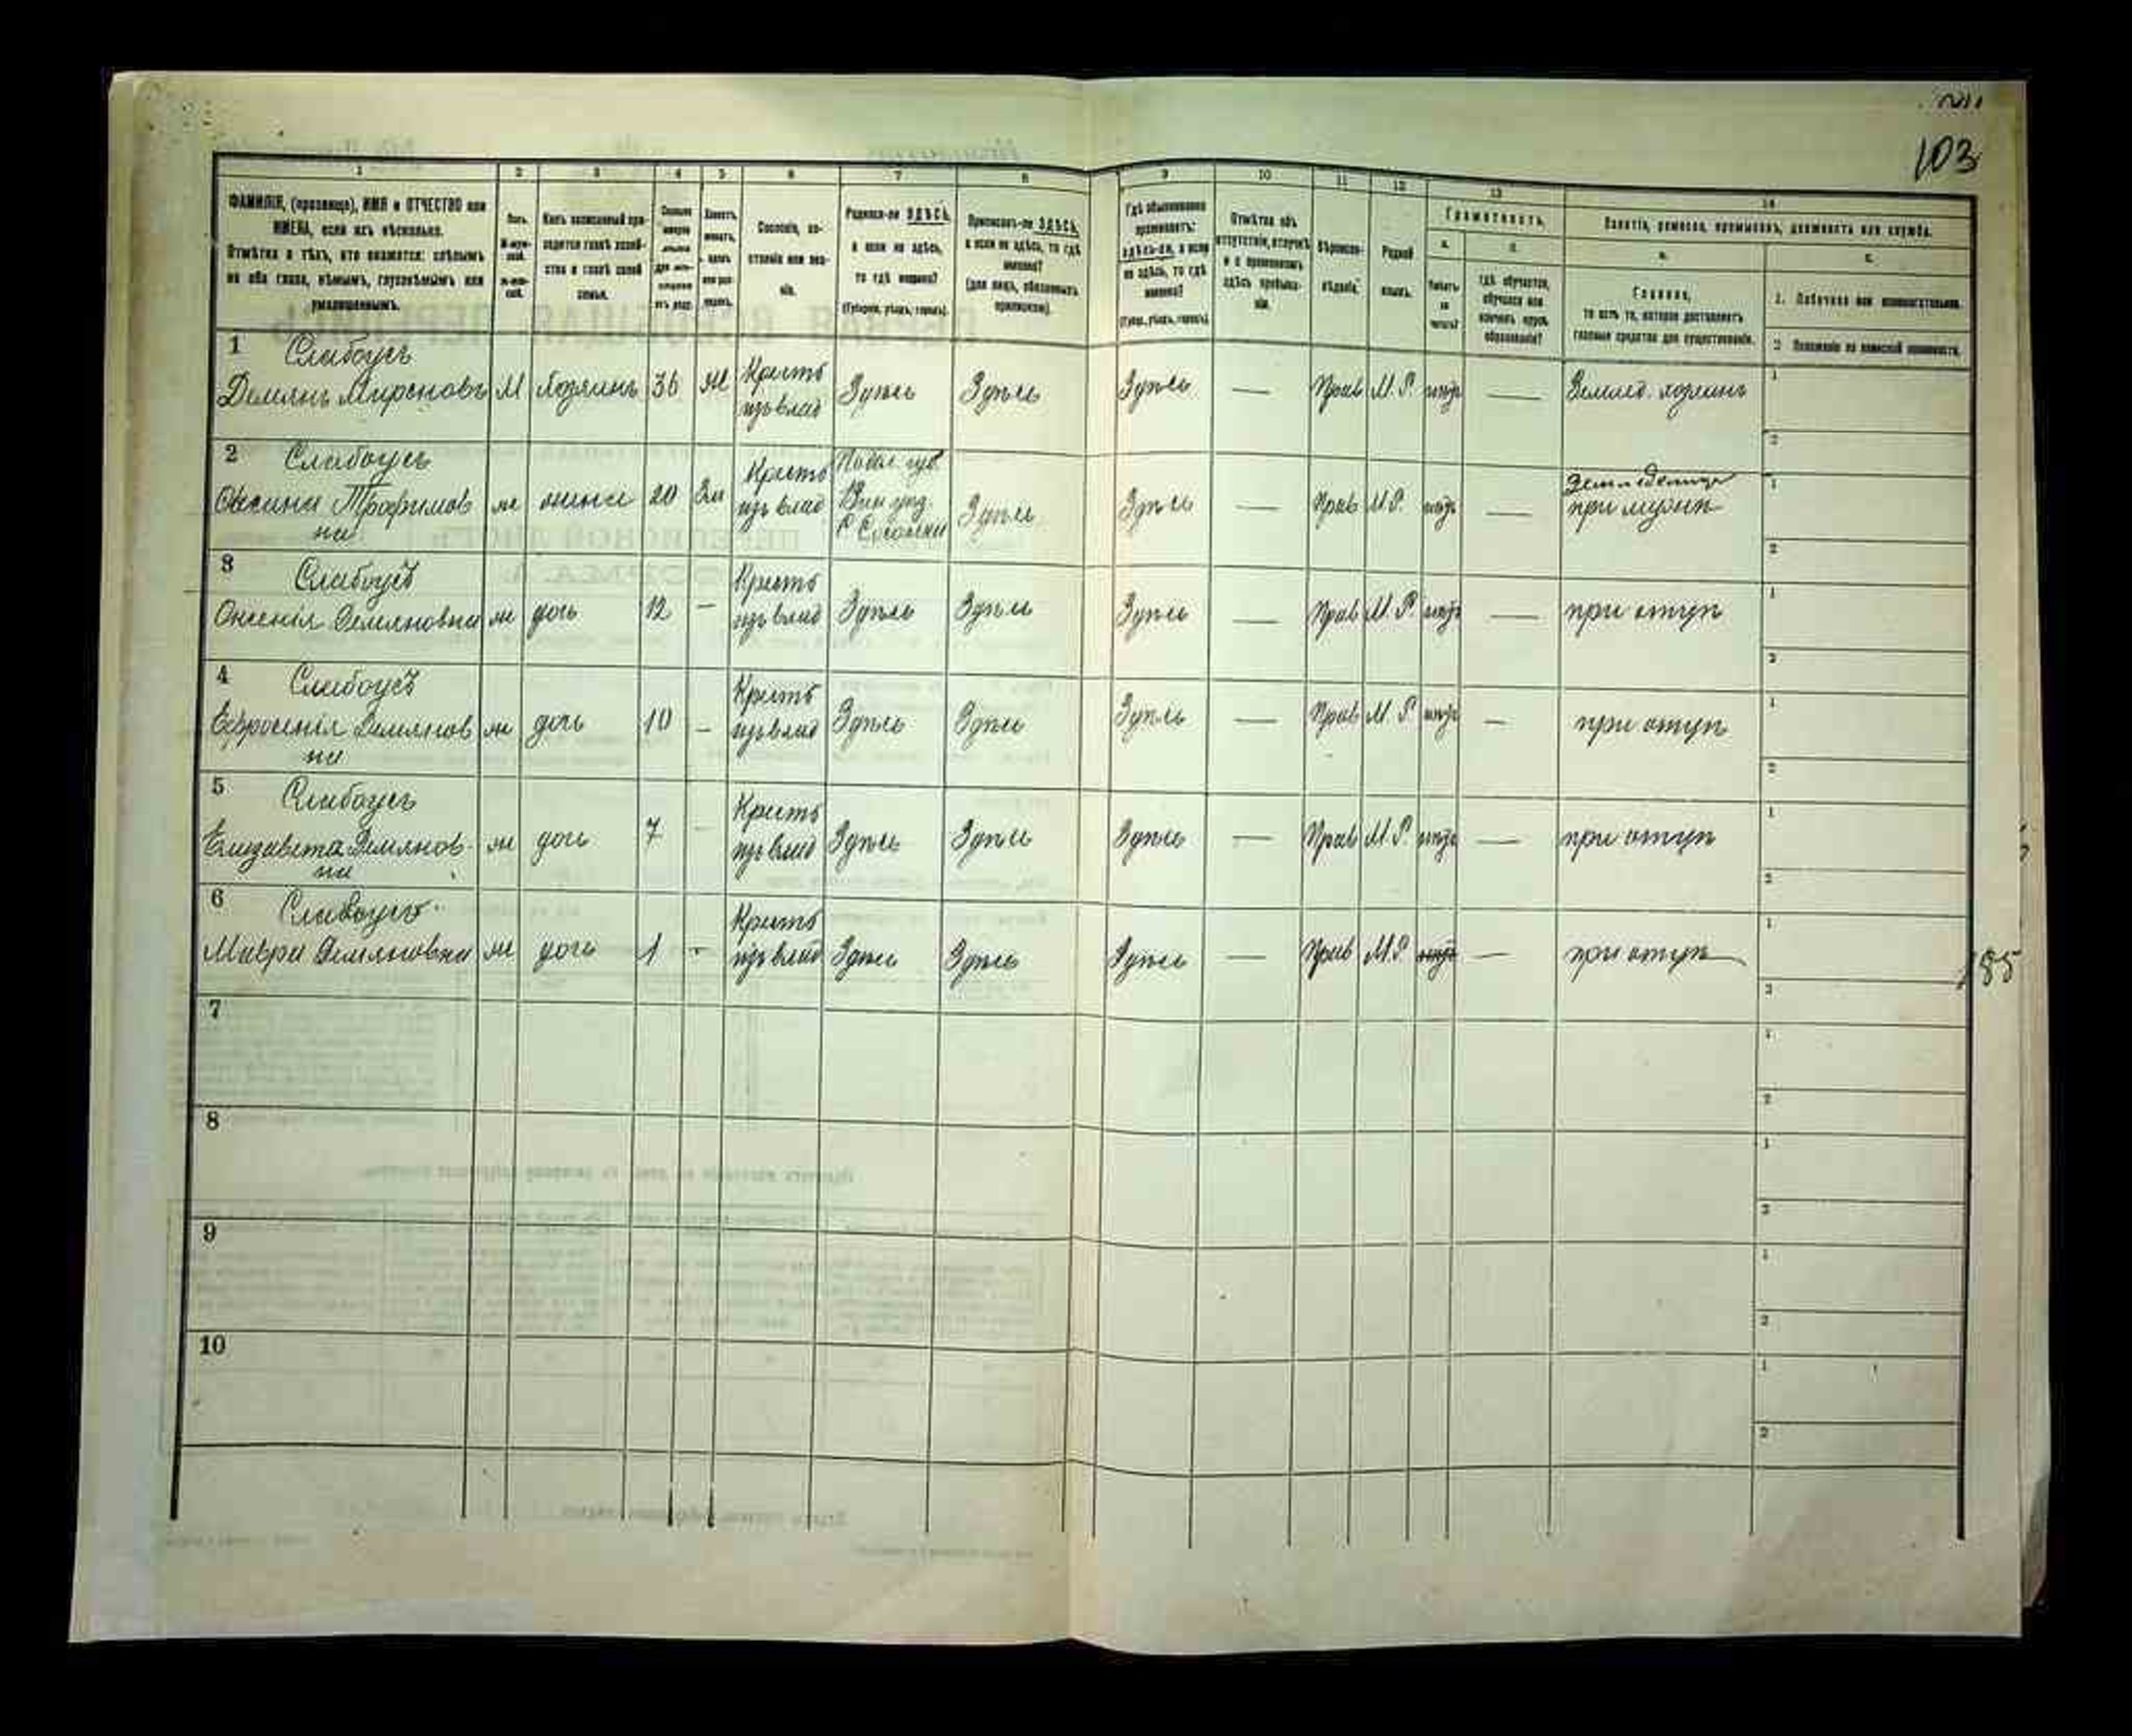 103
1 2 3 4 5 6 7 8 9 10 11 12 13 14
ФАМИЛІЯ, (прозвище), ИМЯ и ОТЧЕСТВО или
ИМЕНА, если ихъ нѣсколько.
Отмѣтка о тѣхъ, кто окажется: слѣпымъ
на оба глаза, нѣмымъ, глухонѣмымъ или
умалишеннымъ.
Полъ.
Какъ записанный при-
ходится главѣ хозяй-
ства и главѣ своей
семьи.
Сословіе, со-
стояніе или зва-
ніе.
Родился-ли ЗДѢСЬ,
а если не здѣсь,
то гдѣ именно?
(Губернія, уѣздъ, городъ).
Приписанъ-ли ЗДѢСЬ,
а если не здѣсь, то гдѣ
именно?
(для лицъ, обязанныхъ
припискою).
Гдѣ обыкновенно
проживаетъ:
здѣсь-ли, а если
не здѣсь, то гдѣ
именно?
(Губер., уѣздъ, городъ).
Отмѣтка объ
отсутствіи, отлучкѣ
и о временномъ
здѣсь пребыва-
ніи.
Вѣроиспо-
вѣданіе.
Родной
языкъ.
Грамотность.
а. б.
Умѣетъ
ли
читать?
гдѣ обучается,
обучался или
кончилъ курсъ
образованія?
Занятіе, ремесло, промыселъ, должность или служба.
а.
Главное,
то есть то, которое доставляетъ
главныя средства для существованія.
1. Побочное или вспомогательное.
2 Положеніе по воинской повинности.
1 Слабоусъ
Демянъ Мироновъ М Хозяинъ 36 Ж Крестъ изъ влад Здѣсь Здѣсь Здѣсь — Прав М.Р. — Землед. хозяинъ 1
2
2 Слабоусъ
Трофимов
на ж жена 20 Зам Крестъ изъ влад Подол. губ. Вин уезд. Здѣсь Здѣсь — Прав М.Р. — Земледелица при мужѣ 1
2
3 Слабоусъ
Демяновна ж дочь 12 — Крестъ изъ влад Здѣсь Здѣсь Здѣсь — Прав М.Р — при отцѣ 1
2
4 Слабоусъ
Ефросенія Демянов
на ж дочь 10 — Крестъ изъ влад Здѣсь Здѣсь Здѣсь — Прав М.Р — при отцѣ 1
2
5 Слабоусъ
Елизавета Демянов-
на ж дочь 7 — Крестъ изъ влад Здѣсь Здѣсь Здѣсь — Прав М.Р. — при отцѣ 1
2
6 Слабоусъ
Мавра Демяновна ж дочь 1 - Крестъ изъ влад Здѣсь Здѣсь Здѣсь — Прав М.Р — при отцѣ 1
2
185
7 1
2
8 1
2
9 1
2
10 1
2